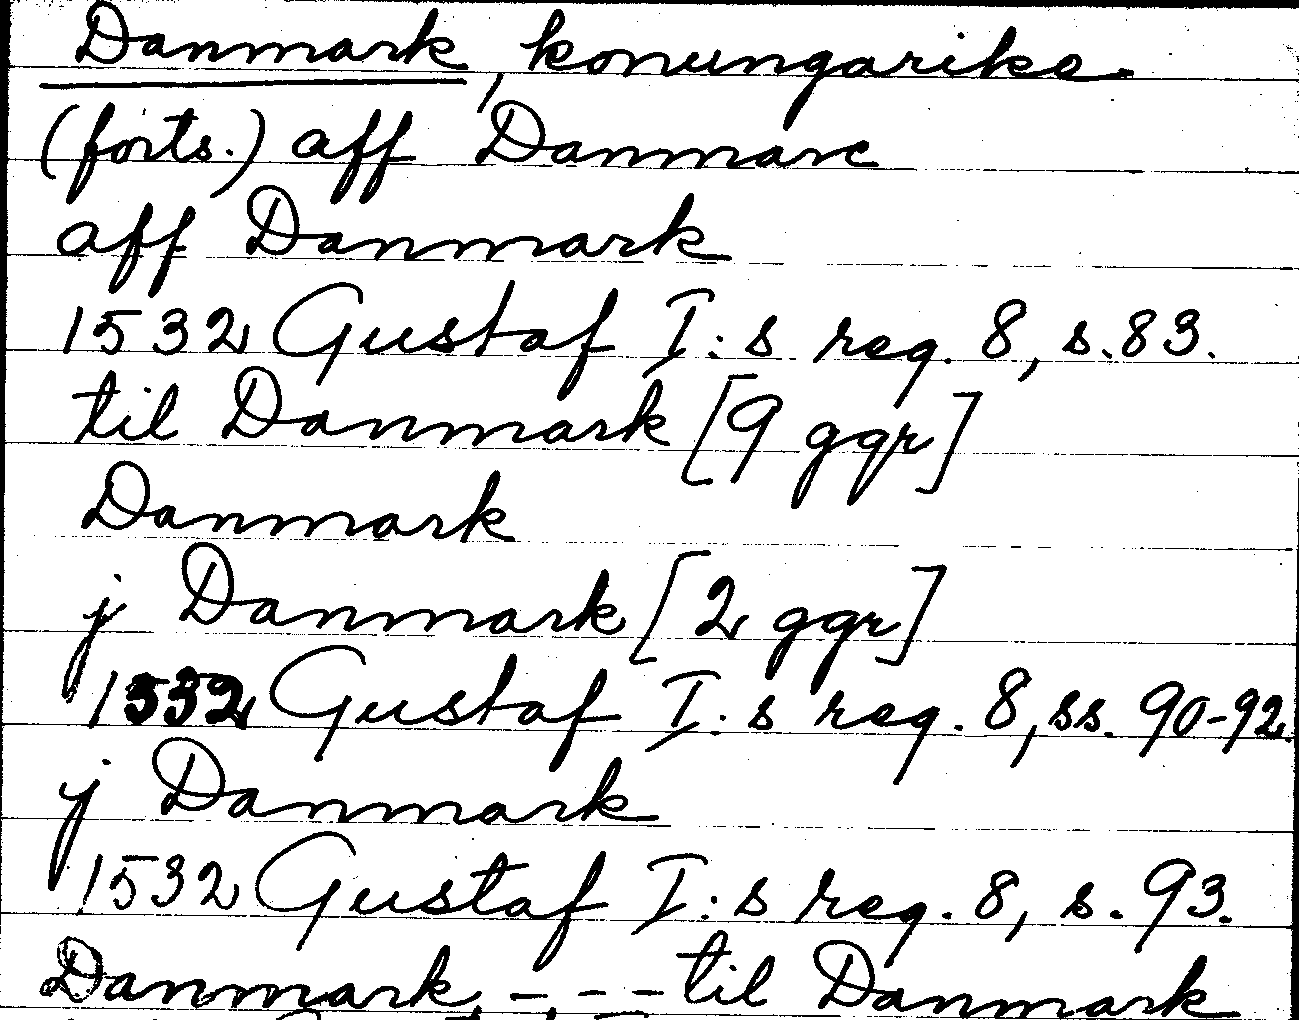 Danmark, konungarike
(forts.) aff Danmarc
aff Danmark
1532 Gustaf I:s reg. 8, s. 83.
til Danmark [9 ggr]
Danmark
j Danmark [2 ggr]
1532 Gustaf I:s reg. 8, ss. 90-92.
j Danmark
1532 Gustaf I:s reg. 8, s. 93.
Danmark, - - - til Danmark